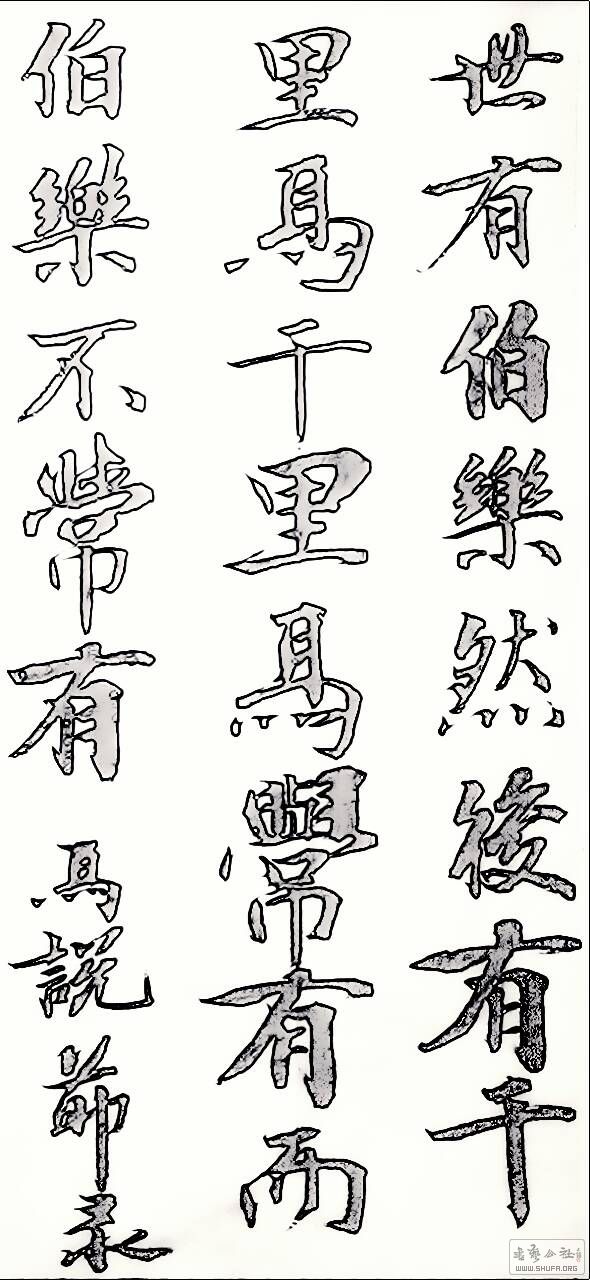 世有伯樂然後有千
里馬千里馬常有而
伯樂不常有 馬說節录
书艺公社
WWW.SHUFA.ORG